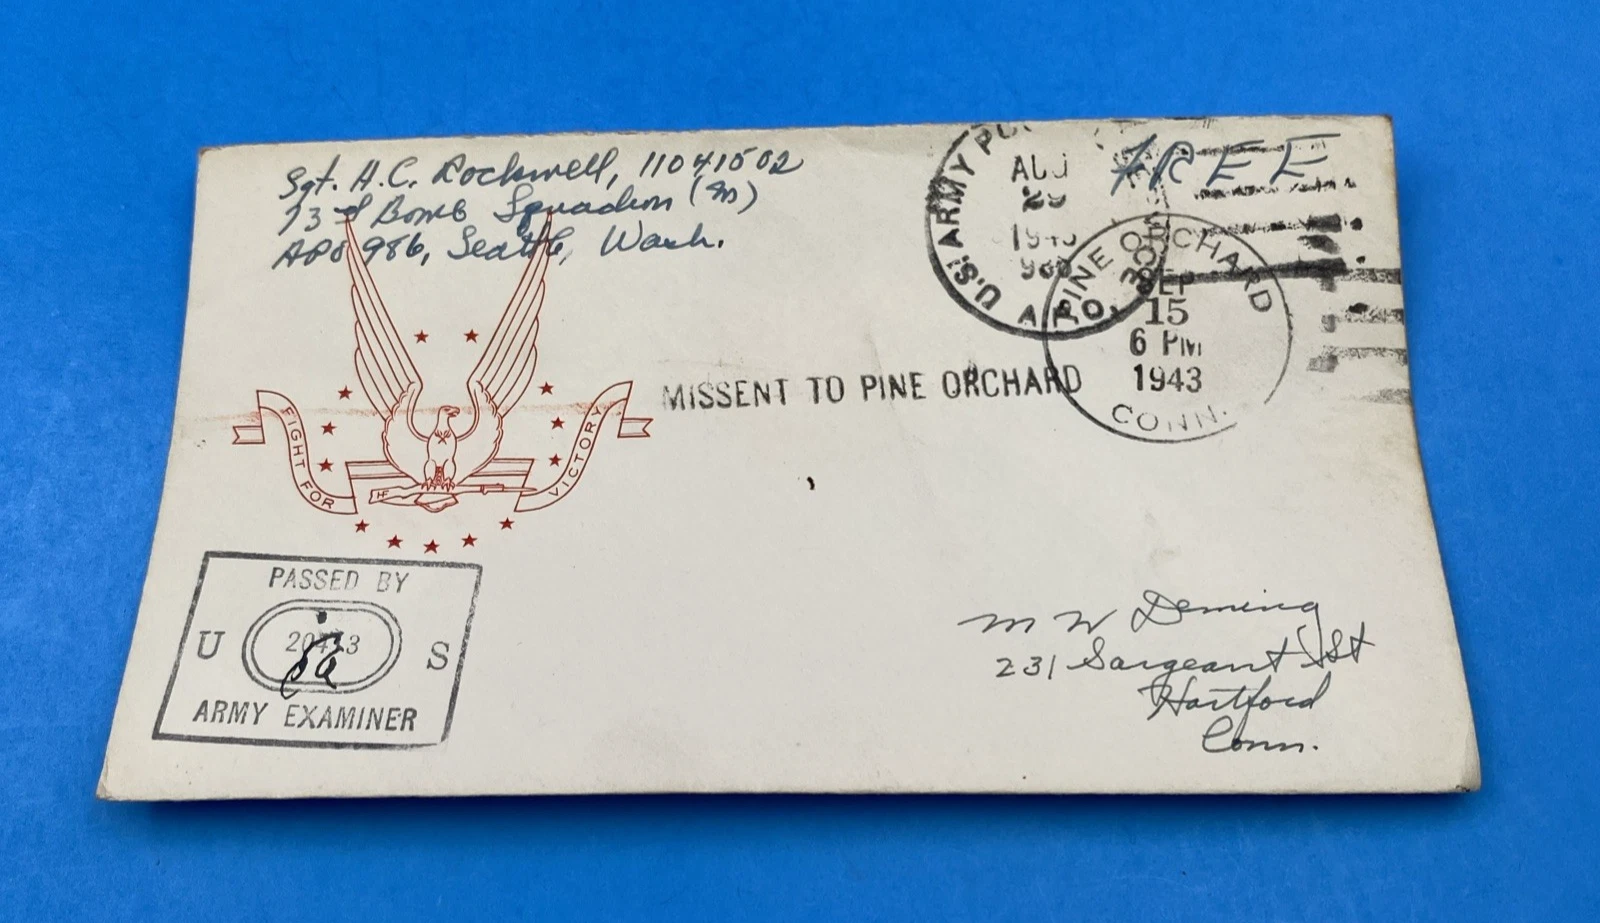 Sgt. H.C. Rockwell, 11041502
73rd Bomb Squadron (M)
APO 986, Seattle, Wash.
FREE
U.S. ARMY
AUG
29
1943
A.P.O.
PINE ORCHARD
SEP
15
6 PM
1943
CONN.
MISSENT TO PINE ORCHARD
FIGHT FOR
VICTORY
PASSED BY
U S
ARMY EXAMINER
M W Deming
231 Sargeant St
Hartford
Conn.